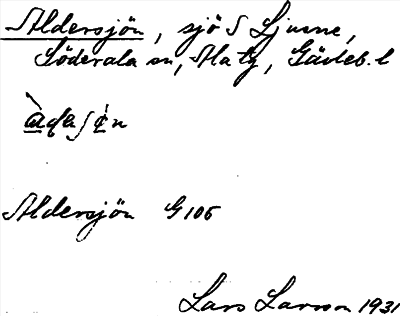 Aldersjön, sjö S Ljusne,
Söderala sn, Ala tg, Gävleb. l
Aldersjön G 106
Lars Larsson 1931